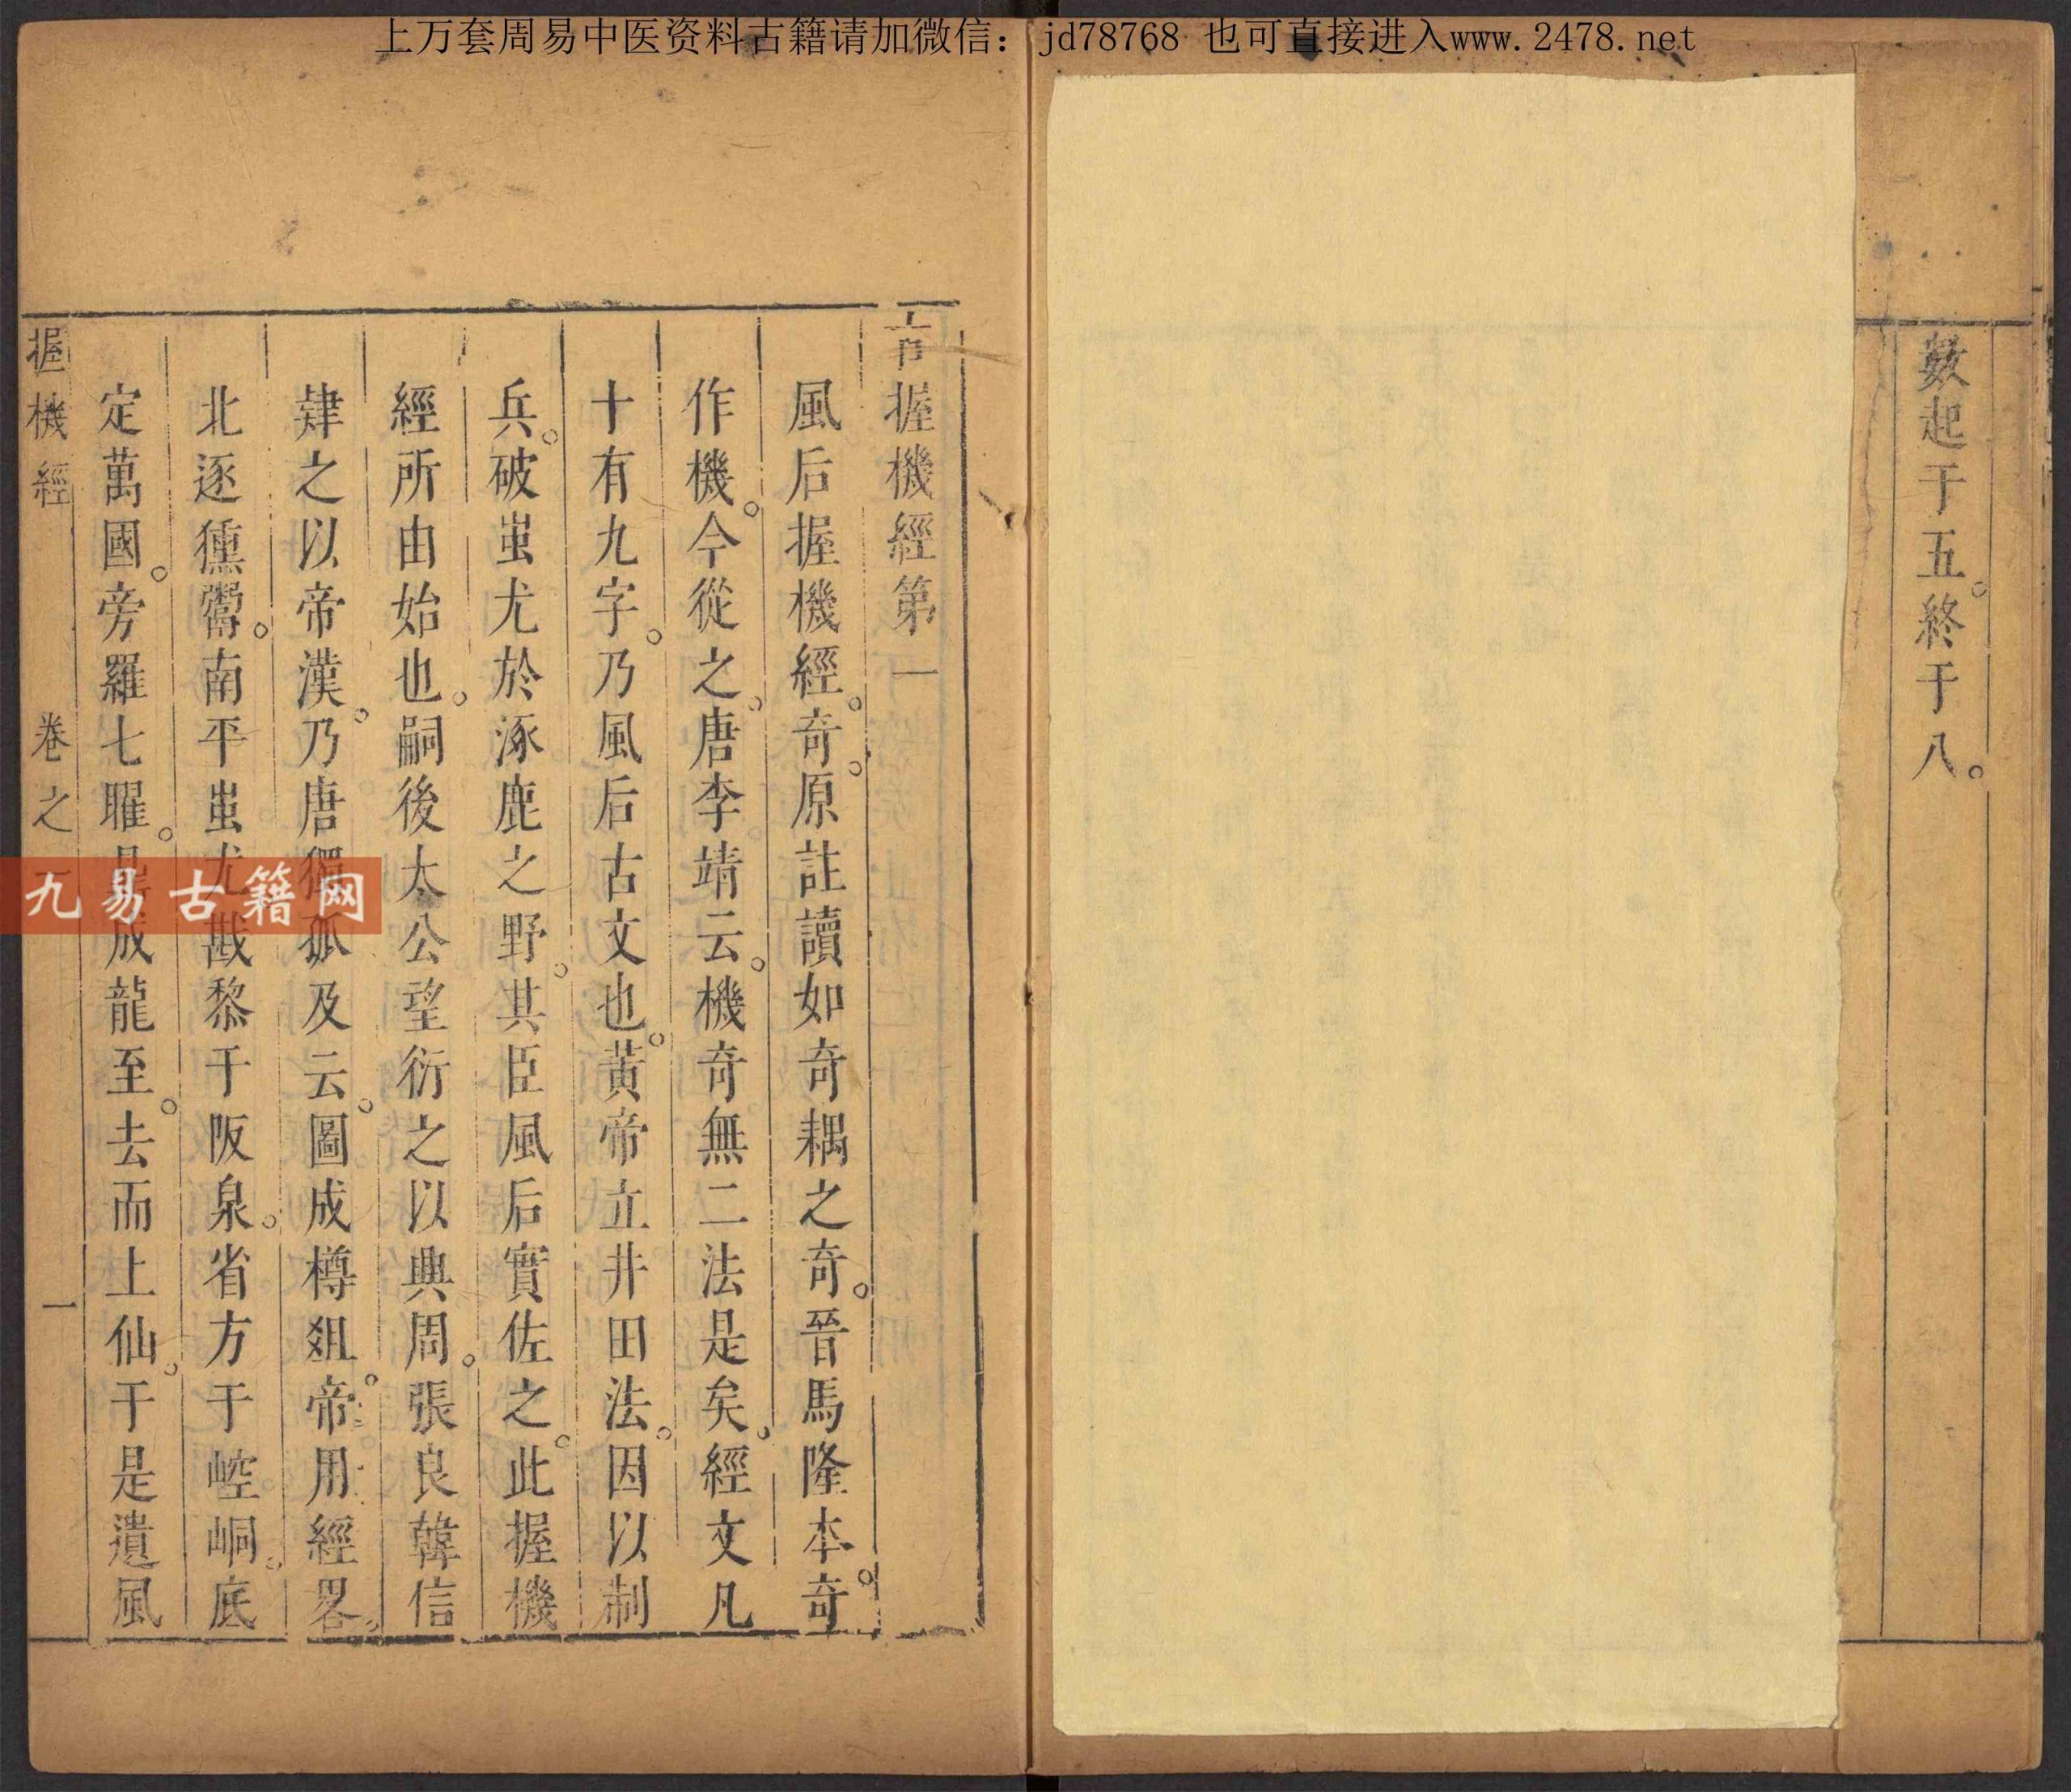 上万套周易中医资料古籍请加微信：jd78768 也可直接进入www.2478.net
數起于五。終于八。
握機經第一
風后握機經。奇。原註讀如奇耦之奇。晉馬隆本。奇
作機。今從之。唐李靖云。機奇無二法是矣。經文凡
十有九字。乃風后古文也。黃帝立井田法。因以制
兵。破蚩尤於涿鹿之野。其臣風后實佐之。此握機
經所由始也。嗣後太公望衍之以興周。張良韓信
肄之以帝漢。乃唐獨孤及云。圖成樽俎。帝用經畧。
北逐獯鬻。南平蚩尤。戡黎于阪泉。省方于崆峒。底
定萬國。旁羅七曜。鼎成龍至。去而上仙。于是遺風
握機經 卷之 一
九易古籍网